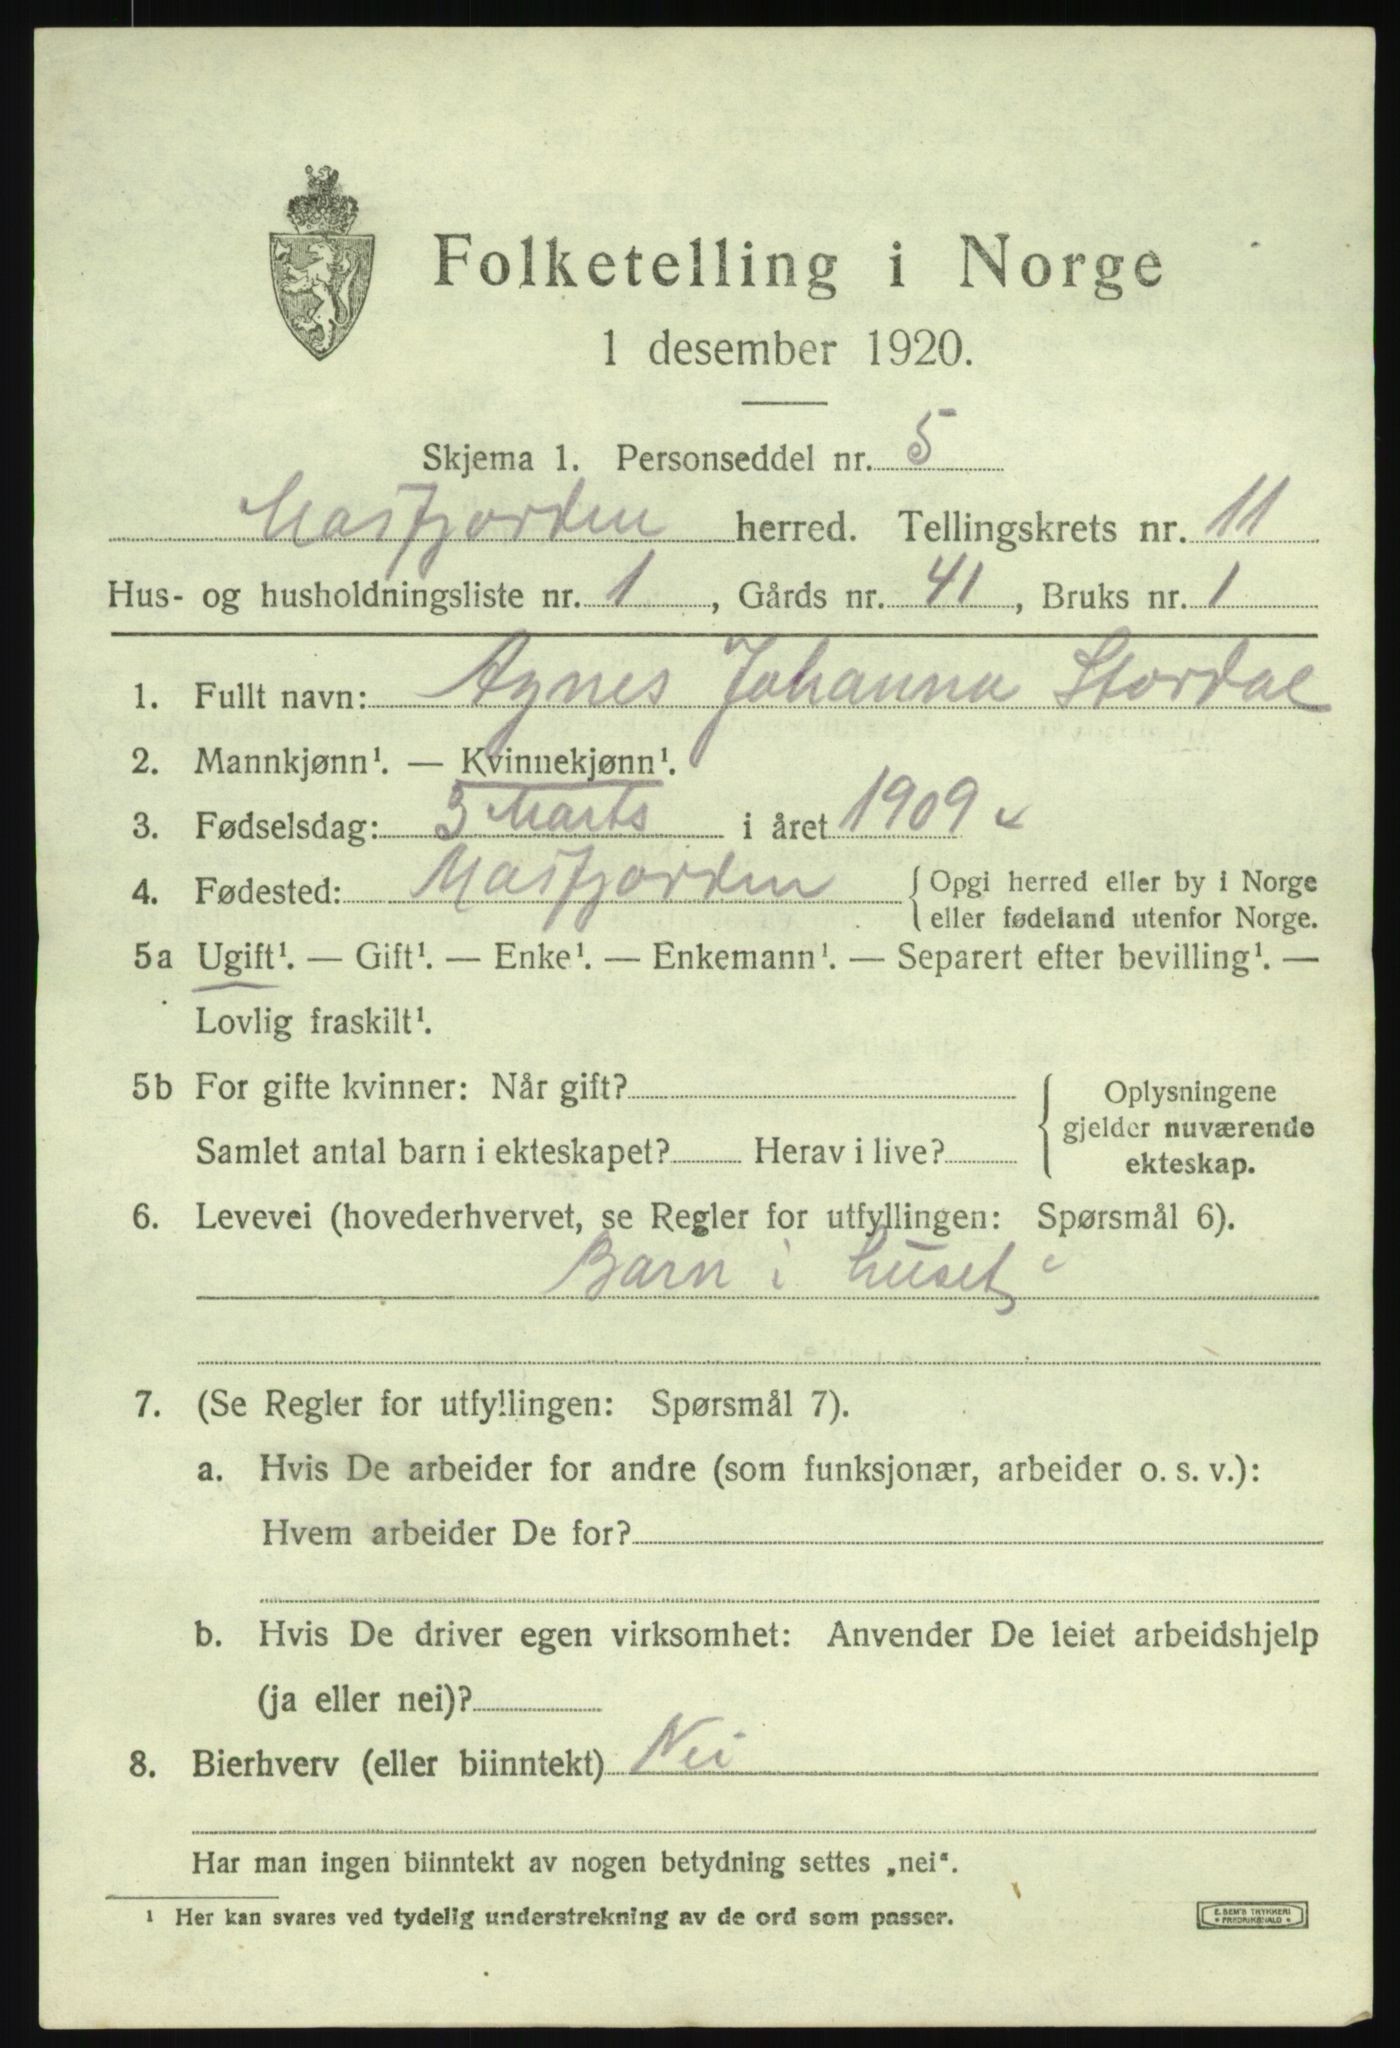 Folketelling i Norge
1 desember 1920.
Skjema 1. Personseddel nr. 5
Masfjorden herred. Tellingskrets nr. 11
Hus- og husholdningsliste nr. 1, Gårds nr. 41, Bruks nr. 1
1. Fullt navn: Agnes Johanna Stordal
2. Mannkjønn¹. — Kvinnekjønn¹.
3. Fødselsdag: 3 Marts i året 1909
4. Fødested: Masfjorden { Opgi herred eller by i Norge
eller fødeland utenfor Norge.
5a Ugift¹. — Gift¹. — Enke¹. — Enkemann¹. — Separert efter bevilling¹. —
Lovlig fraskilt¹.
5b For gifte kvinner: Når gift? { Oplysningene
gjelder nuværende
Samlet antal barn i ekteskapet? Herav i live? ekteskap.
6. Levevei (hovederhvervet, se Regler for utfyllingen: Spørsmål 6).
Barn i huset
7. (Se Regler for utfyllingen: Spørsmål 7).
a. Hvis De arbeider for andre (som funksjonær, arbeider o. s. v.):
Hvem arbeider De for?
b. Hvis De driver egen virksomhet: Anvender De leiet arbeidshjelp
(ja eller nei)?
8. Bierhverv (eller biinntekt) Nei
Har man ingen biinntekt av nogen betydning settes „nei“.
¹ Her kan svares ved tydelig understrekning av de ord som passer.
E. SEM'S TRYKKERI
* FREDRIKSHALD *